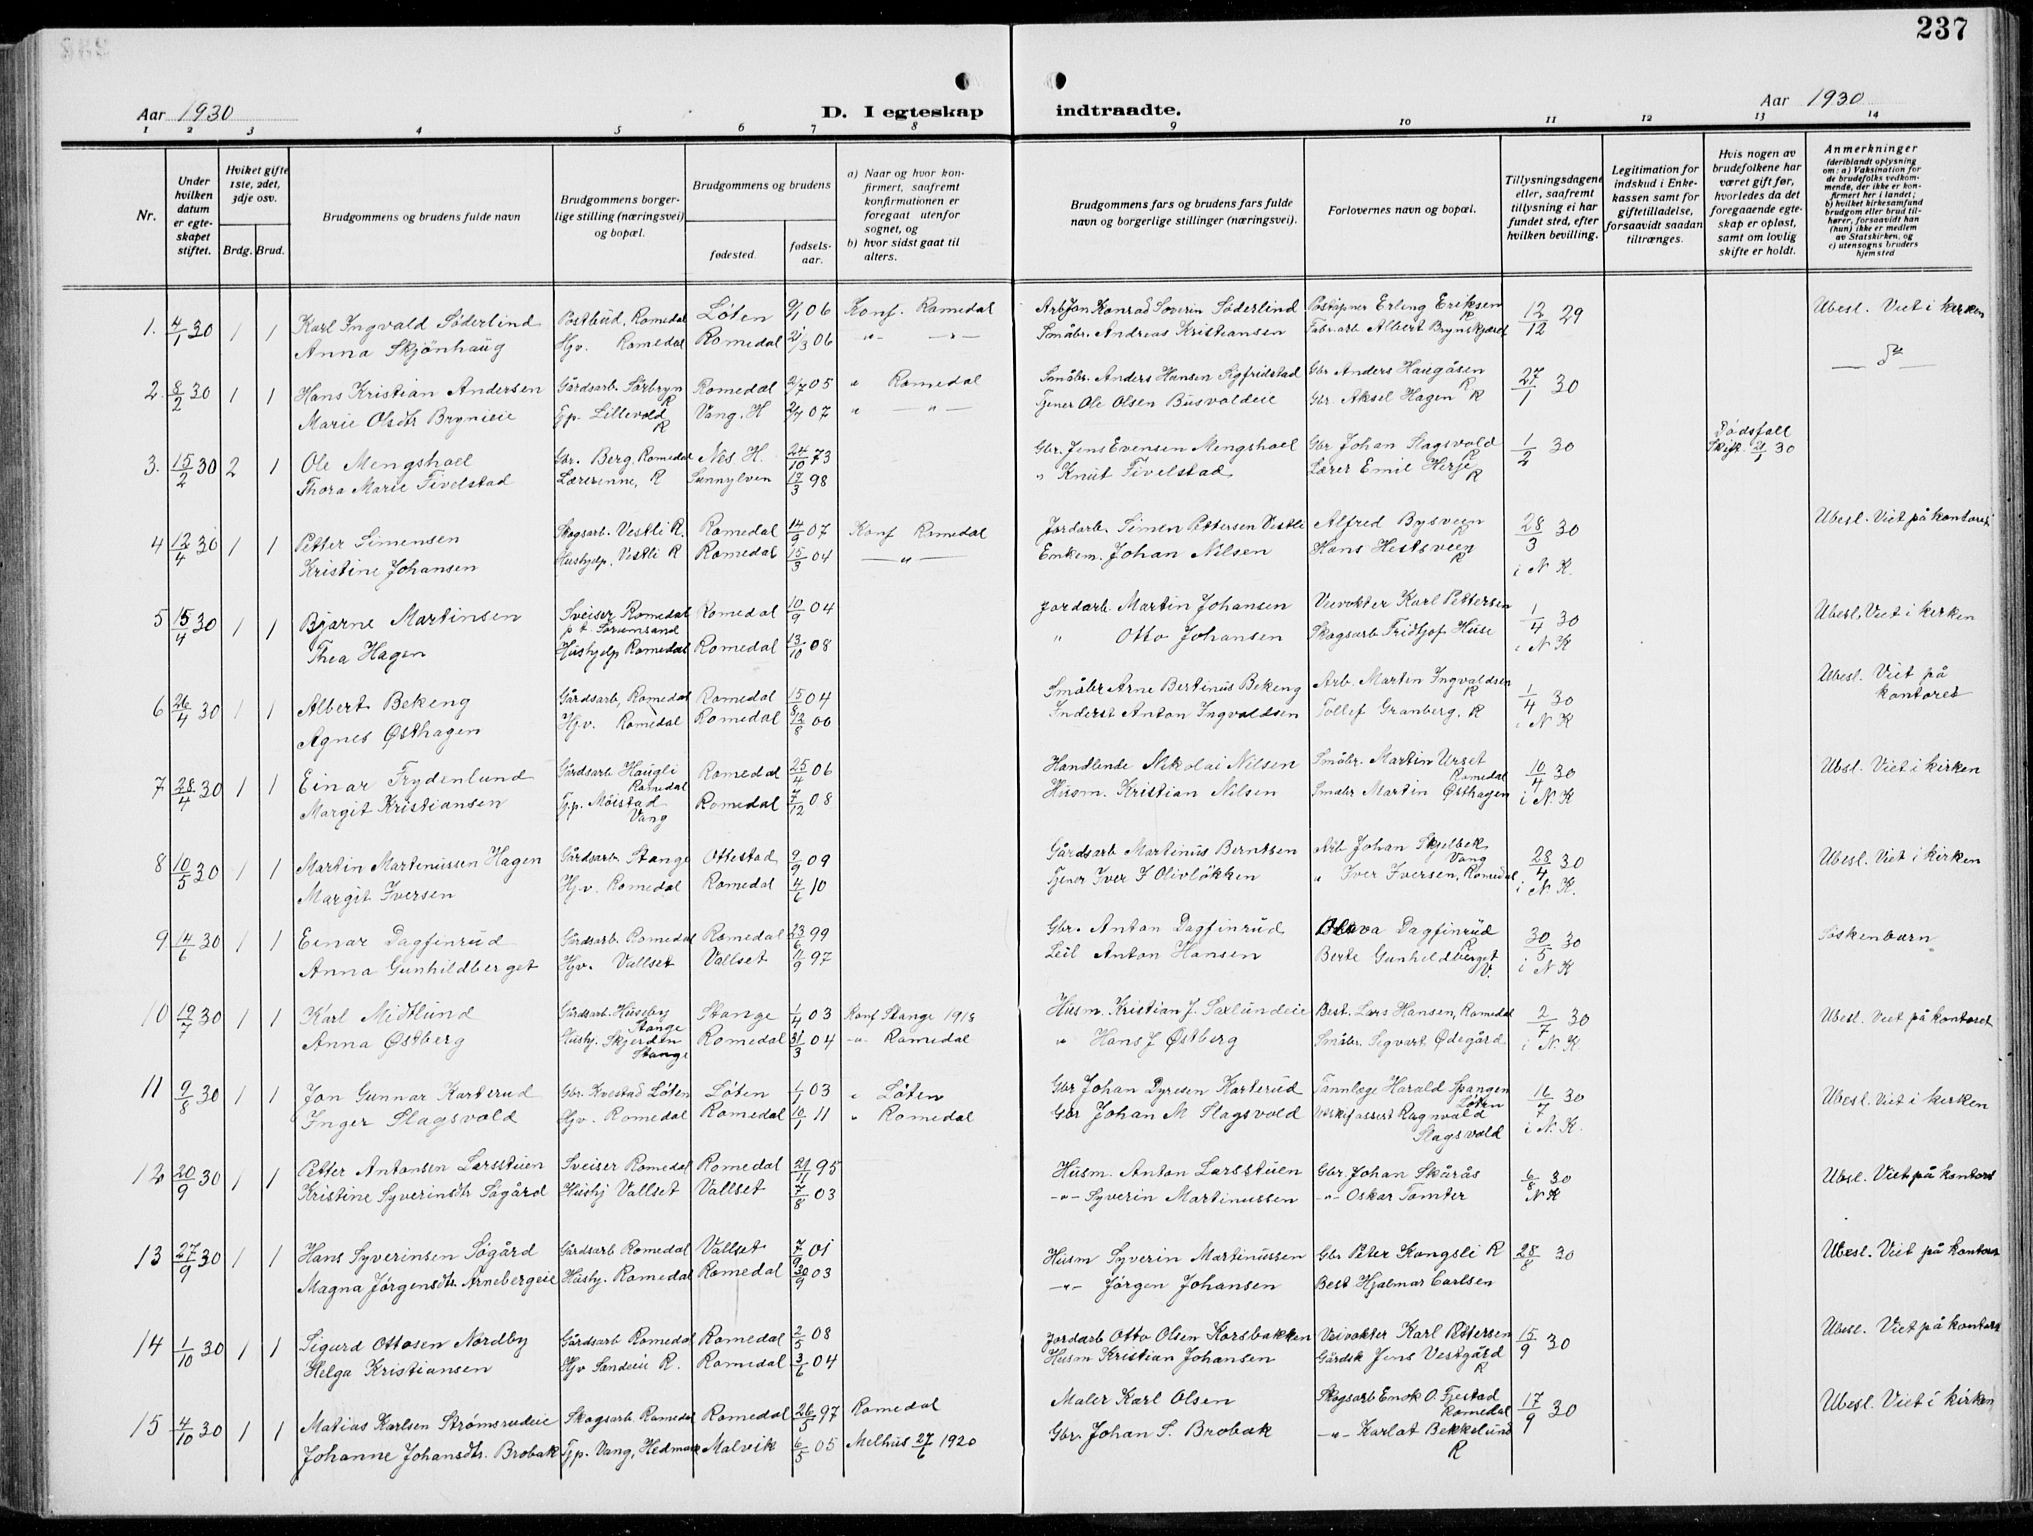 237
Aar 1930
D. I egteskap indtraadte.
Aar 1930
1 2 3 4 5 6 7 8 9 10 11 12 13 14
Nr.
Under hvilken datum er egteskapet stiftet.
Hvilket gifte 1ste, 2det, 3dje osv.
Brdg. Brud.
Brudgommens og brudens fulde navn
Brudgommens borgerlige stilling (næringsvei) og bopæl.
Brudgommens og brudens
fødested.
fødselsaar.
a) Naar og hvor konfirmert, saafremt konfirmationen er foregaat utenfor sognet, og
b) hvor sidst gaat til alters.
Brudgommens fars og brudens fars fulde navn og borgerlige stillinger (næringsvei).
Forlovernes navn og bopæl.
Tillysningsdagene eller, saafremt tillysning ei har fundet sted, efter hvilken bevilling.
Legitimation for indskud i Enkekassen samt for giftetilladelse, forsaavidt saadan tiltrænges.
Hvis nogen av brudefolkene har været gift før, hvorledes da det foregaaende egteskap er opløst, samt om lovlig skifte er holdt.
Anmerkninger
(deriblandt oplysning om: a) Vaksination for de brudefolks vedkommende, der ikke er konfirmert her i landet; b) hvilket kirkesamfund brudgom eller brud tilhører, forsaavidt han (hun) ikke er medlem av Statskirken, og c) utensogns bruders hjemsted
1. 4/1 30 1 1 Karl Ingvald Söderlind Postbud, Romedal Löten 9/1 06 Konf. Romedal Arb Jon Konrad Soverin Söderlind Poståpner Erling Eriksen R 12/12 29 Ubesl. Viet i kirken
Anna Skjönhaug Hjv. Romedal Romedal 21/3 06 -"- -"- Småbr. Andreas Kristiansen Fabr.arb Albert Brynskjæret
2. 8/2 30 1 1 Hans Kristian Andersen Gårdsarb. Sörbryn R Romedal 2/7 05 " Romedal Småbr. Anders Hansen Sigfridstad Gbr Anders Haugåsen R 27/1 30
Marie Olsdtr Brynieie Tjp. Lillevold R Vang. H 2/7 07 " -"- Tjener Ole Olsen Busvoldeie Gbr. Aksel Hagen R
3. 15/2 30 2 1 Ole Mengshoel Gbr. Berg, Romedal Nes H. 24/10 73 Gbr. Jens Evensen Mengshoel Gbr Johan Slagsvold R 1/2 30 Dødsfall
Thora Marie Fivelstad Lærerinne, R Sunnylven 17/3 98 " Knut Fivelstad Lærer Emil Herje R
4 12/4 30 1 1 Petter Simensen Skogsarb. Vestli R. Romedal 14/9 07 Konf Romedal Jordarb. Simen Pettersen Vestli Alfred Bysveen R 28/3 30 Ubesl. Viet på kontoret
Kristine Johansen Hushjelp, Vestli R Romedal 15/3 04 -"- Enkem. Johan Nilsen Hans Hestsveen R i N K.
5 15/4 30 1 1 Bjarne Martinsen Sveiser Romedal p t Sörumsand Romedal 10/9 04 Jordarb. Martin Johansen Veivokter Karl Pettersen 1/4 30 Ubesl. Viet i kirken
Thea Hagen Hushjelp Romedal Romedal 13/10 08 " Otto Johansen Skogsarb Fridtjof Huse i N K
6 26/4 30 1 1 Albert Bekeng Gårdsarb, Romedal Romedal 15/8 04 Småbr Arne Bertinus Bekeng Arb. Martin Ingvaldsen R 1/4 30 Ubesl. Viet på kontoret
Agnes Østhagen Hjv. Romedal Romedal 12/8 00 Inderst Anton Ingvaldsen Tollef Granberg, R i N K
7 28/4 30 1 1 Einar Frydenlund Gårdsarb Haugli Romedal Romedal 25/4 06 Handlende Nikolai Nilsen Småbr. Martin Urset Romedal 10/4 30 Ubsl. Viet i kirken
Margit Kristiansen Tjp. Möistad Vang Romedal 7/12 08 Husm. Kristian Nilsen Småbr Martin Østhagen i N. K
8 10/5 30 1 1 Martin Martinussen Hagen Gårdsarb. Stange Ottestad 9/9 09 Gårdsarb Martinus Berntsen Arb Johan Skjelbek Vang 28/4 30 Ubesl. Viet i kirken
Margit Iversen Hjv. Romedal Romedal 4/6 10 Tjener Iver I Olivlökken " Iver Iversen, Romedal i N. K.
9 14/6 30 1 1 Einar Dagfinrud Gårdsarb. Romedal Romedal 23/6 99 Gbr. Anton Dagfinrud Dagfinrud R 30/5 30 Söskenbarn
Anna Gunhildberget Hjv. Vallset Vallset 11/9 97 Leil Anton Hansen Berte Gunhildberget V. i N K
10 19/7 30 1 1 Karl Midtlund Gårdsarb. Huseby Stange Stange 1/4 03 Konf Stange 1918 Husm. Kristian J. Saxlundeie Best. Lars Hansen, Romedal 2/7 30 Ubesl. Viet på kontoret
Anna Østberg Hushj. Skjerden Stange Romedal 31/3 04 -"- Romedal " Hans J Østberg Småbr. Sigvart Ødegård i N. K
11 9/8 30 1 1 Jon Gunnar Karterud Gbr. Kvestad Löten Löten 1/1 03 " Löten Gbr Johan Dyresen Karterud Tannlæge Harald Spangen Löten 16/7 30 Ubesl. Viet i kirken
Inger Slagsvold Hjv. Romedal Romedal 10/1 11 " Romedal Gbr Johan M Slagsvold Ragnvald Slagsvold i N. K.
12 20/9 30 1 1 Petter Antonsen Larsstuen Sveiser Romedal Romedal 21/11 95 Husm. Anton Larsstuen Gbr. Johan Skårås 6/8 30 Ubesl. Viet på kontoret
Kristine Syverinsdtr Sögård Hushj Vallset Vallset 7/8 03 -"- Syverin Martinussen -"- Oskar Tomter N K
13 27/9 30 1 1 Hans Syverinsen Sögård Gårdsarb Romedal Vallset 7/9 01 Husm Syverin Martinussen Gbr Peter Kongsli R 28/8 30 Ubesl. Viet på kontoret
Magna Jörgensdtr. Arnebergeie Hushj. Romedal Romedal 30/9 03 -"- Jörgen Johansen Best Hjalmar Carlsen
14 1/10 30 1 1 Sigurd Ottosen Nordby Gårdsarb Romedal Romedal 2/5 08 Jordarb Otto Olsen Korsbakken Veivokter Karl Pettersen 15/9 30 Ubesl. Viet på kontoret
Helga Kristiansen Hjv Sandeie R. Romedal 3/6 04 Husm Kristian Johansen Gårdsk Jens Vestgård R
15 4/10 30 1 1 Matias Karlsen Strömsrudeie Skogsarb Romedal Romedal 26/5 97 Romedal Maler Karl Olsen Skogsarb Enok O. Fjestad Romedal 17/9 30 Ubesl. Viet i kirken
Johanne Johansdtr. Brobak Tjp. Vang, Hedmark Malvik 6/5 05 Melhus 27/6 1920 Gbr. Johan S. Brobak -"- Karlot Bekkelund R